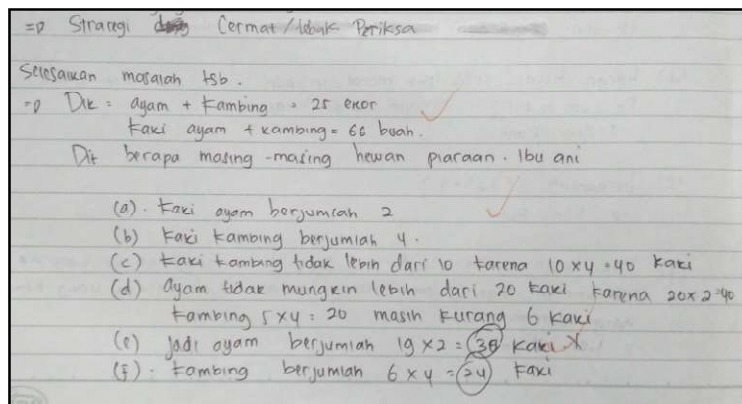 => Strategi Cermat/tebak Periksa
Selesaikan masalah tsb.
=> Dik = ayam + kambing = 25 ekor
kaki ayam + kambing = 66 buah.
Dit berapa masing-masing hewan piaraan. Ibu ani
(a). kaki ayam berjumlah 2
(b) kaki kambing berjumlah 4.
(c) kaki kambing tidak lebih dari 10 karena 10 x 4 = 40 kaki
(d) ayam tidak mungkin lebih dari 20 kaki karena 20 x 2 = 40
kambing 5 x 4 = 20 masih kurang 6 kaki
(e) jadi ayam berjumlah 19 x 2 = 38 kaki
(f). kambing berjumlah 6 x 4 = 24 kaki